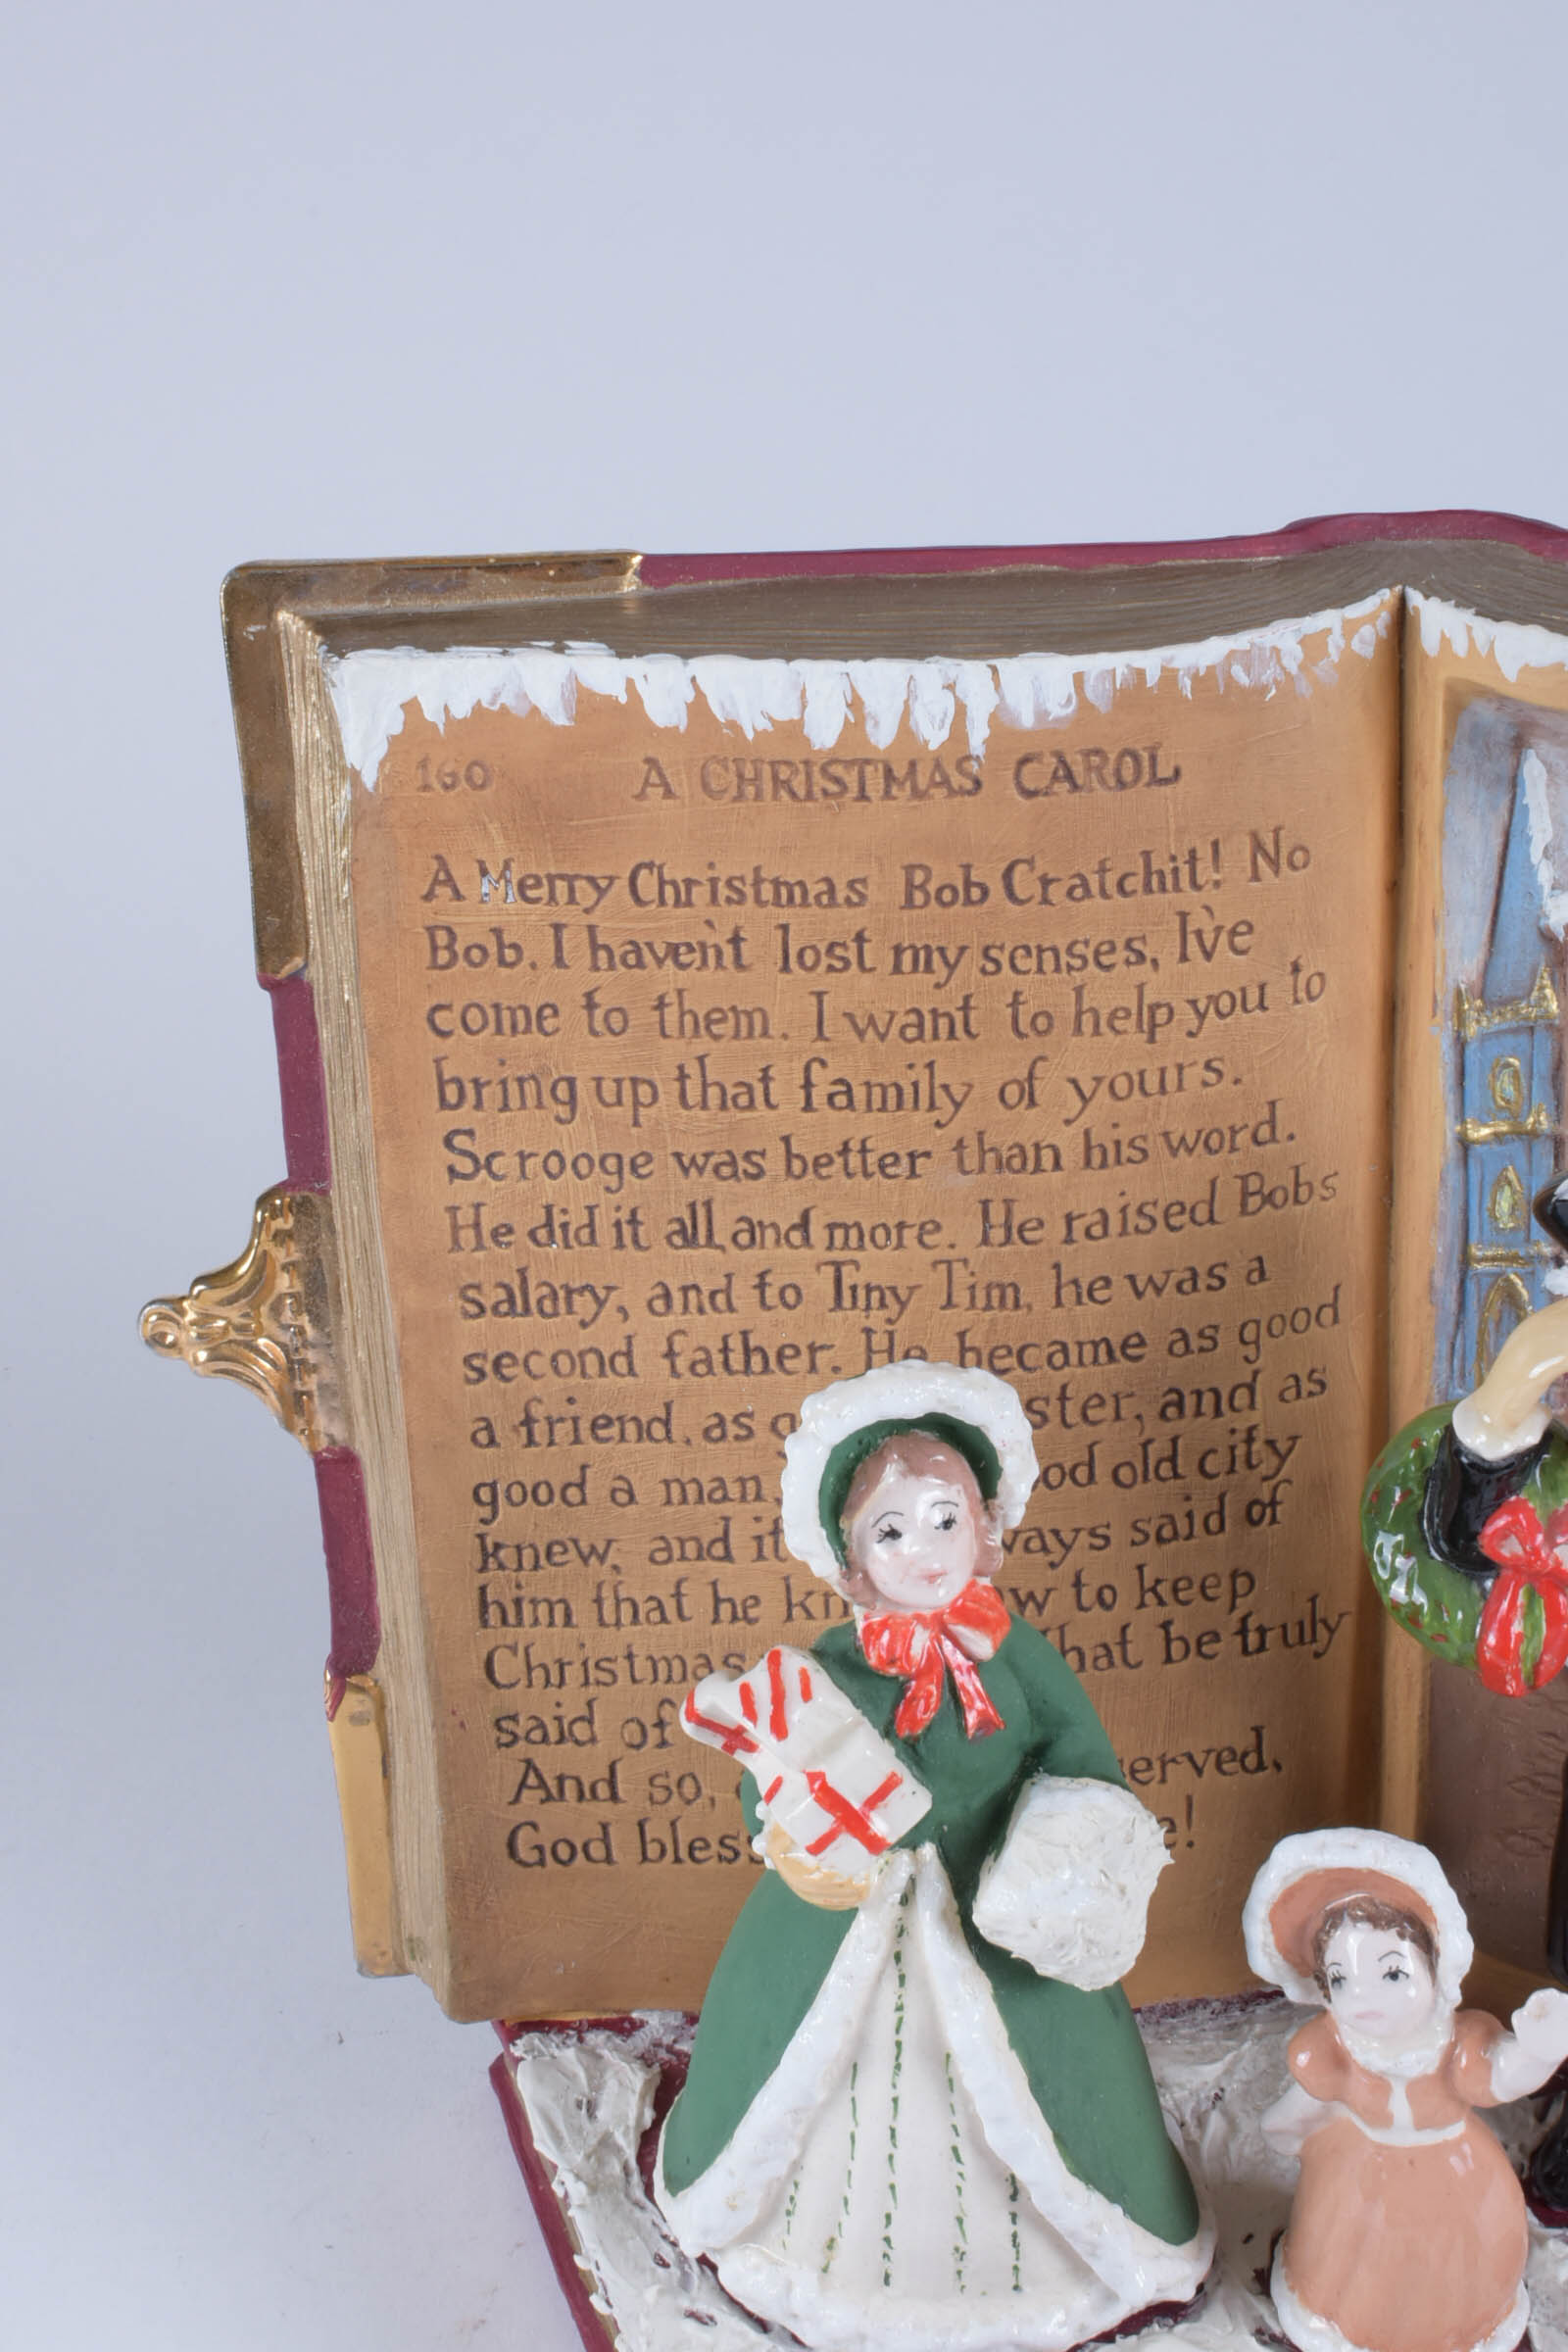 160 A CHRISTMAS CAROL
A Merry Christmas Bob Cratchit! No
Bob. I haven't lost my senses, I've
come to them. I want to help you to
bring up that family of yours.
Scrooge was better than his word.
He did it all, and more. He raised Bobs
salary, and to Tiny Tim, he was a
second father. He became as good
a friend, as ster, and as
good a man od old city
knew, and it ways said of
him that he kn w to keep
Christmas hat be truly
said of
And so, erved,
God bless e!